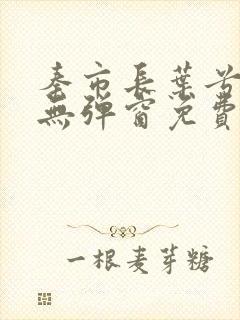 秦市長葉兮
無彈窗免費
一根麦芽糖